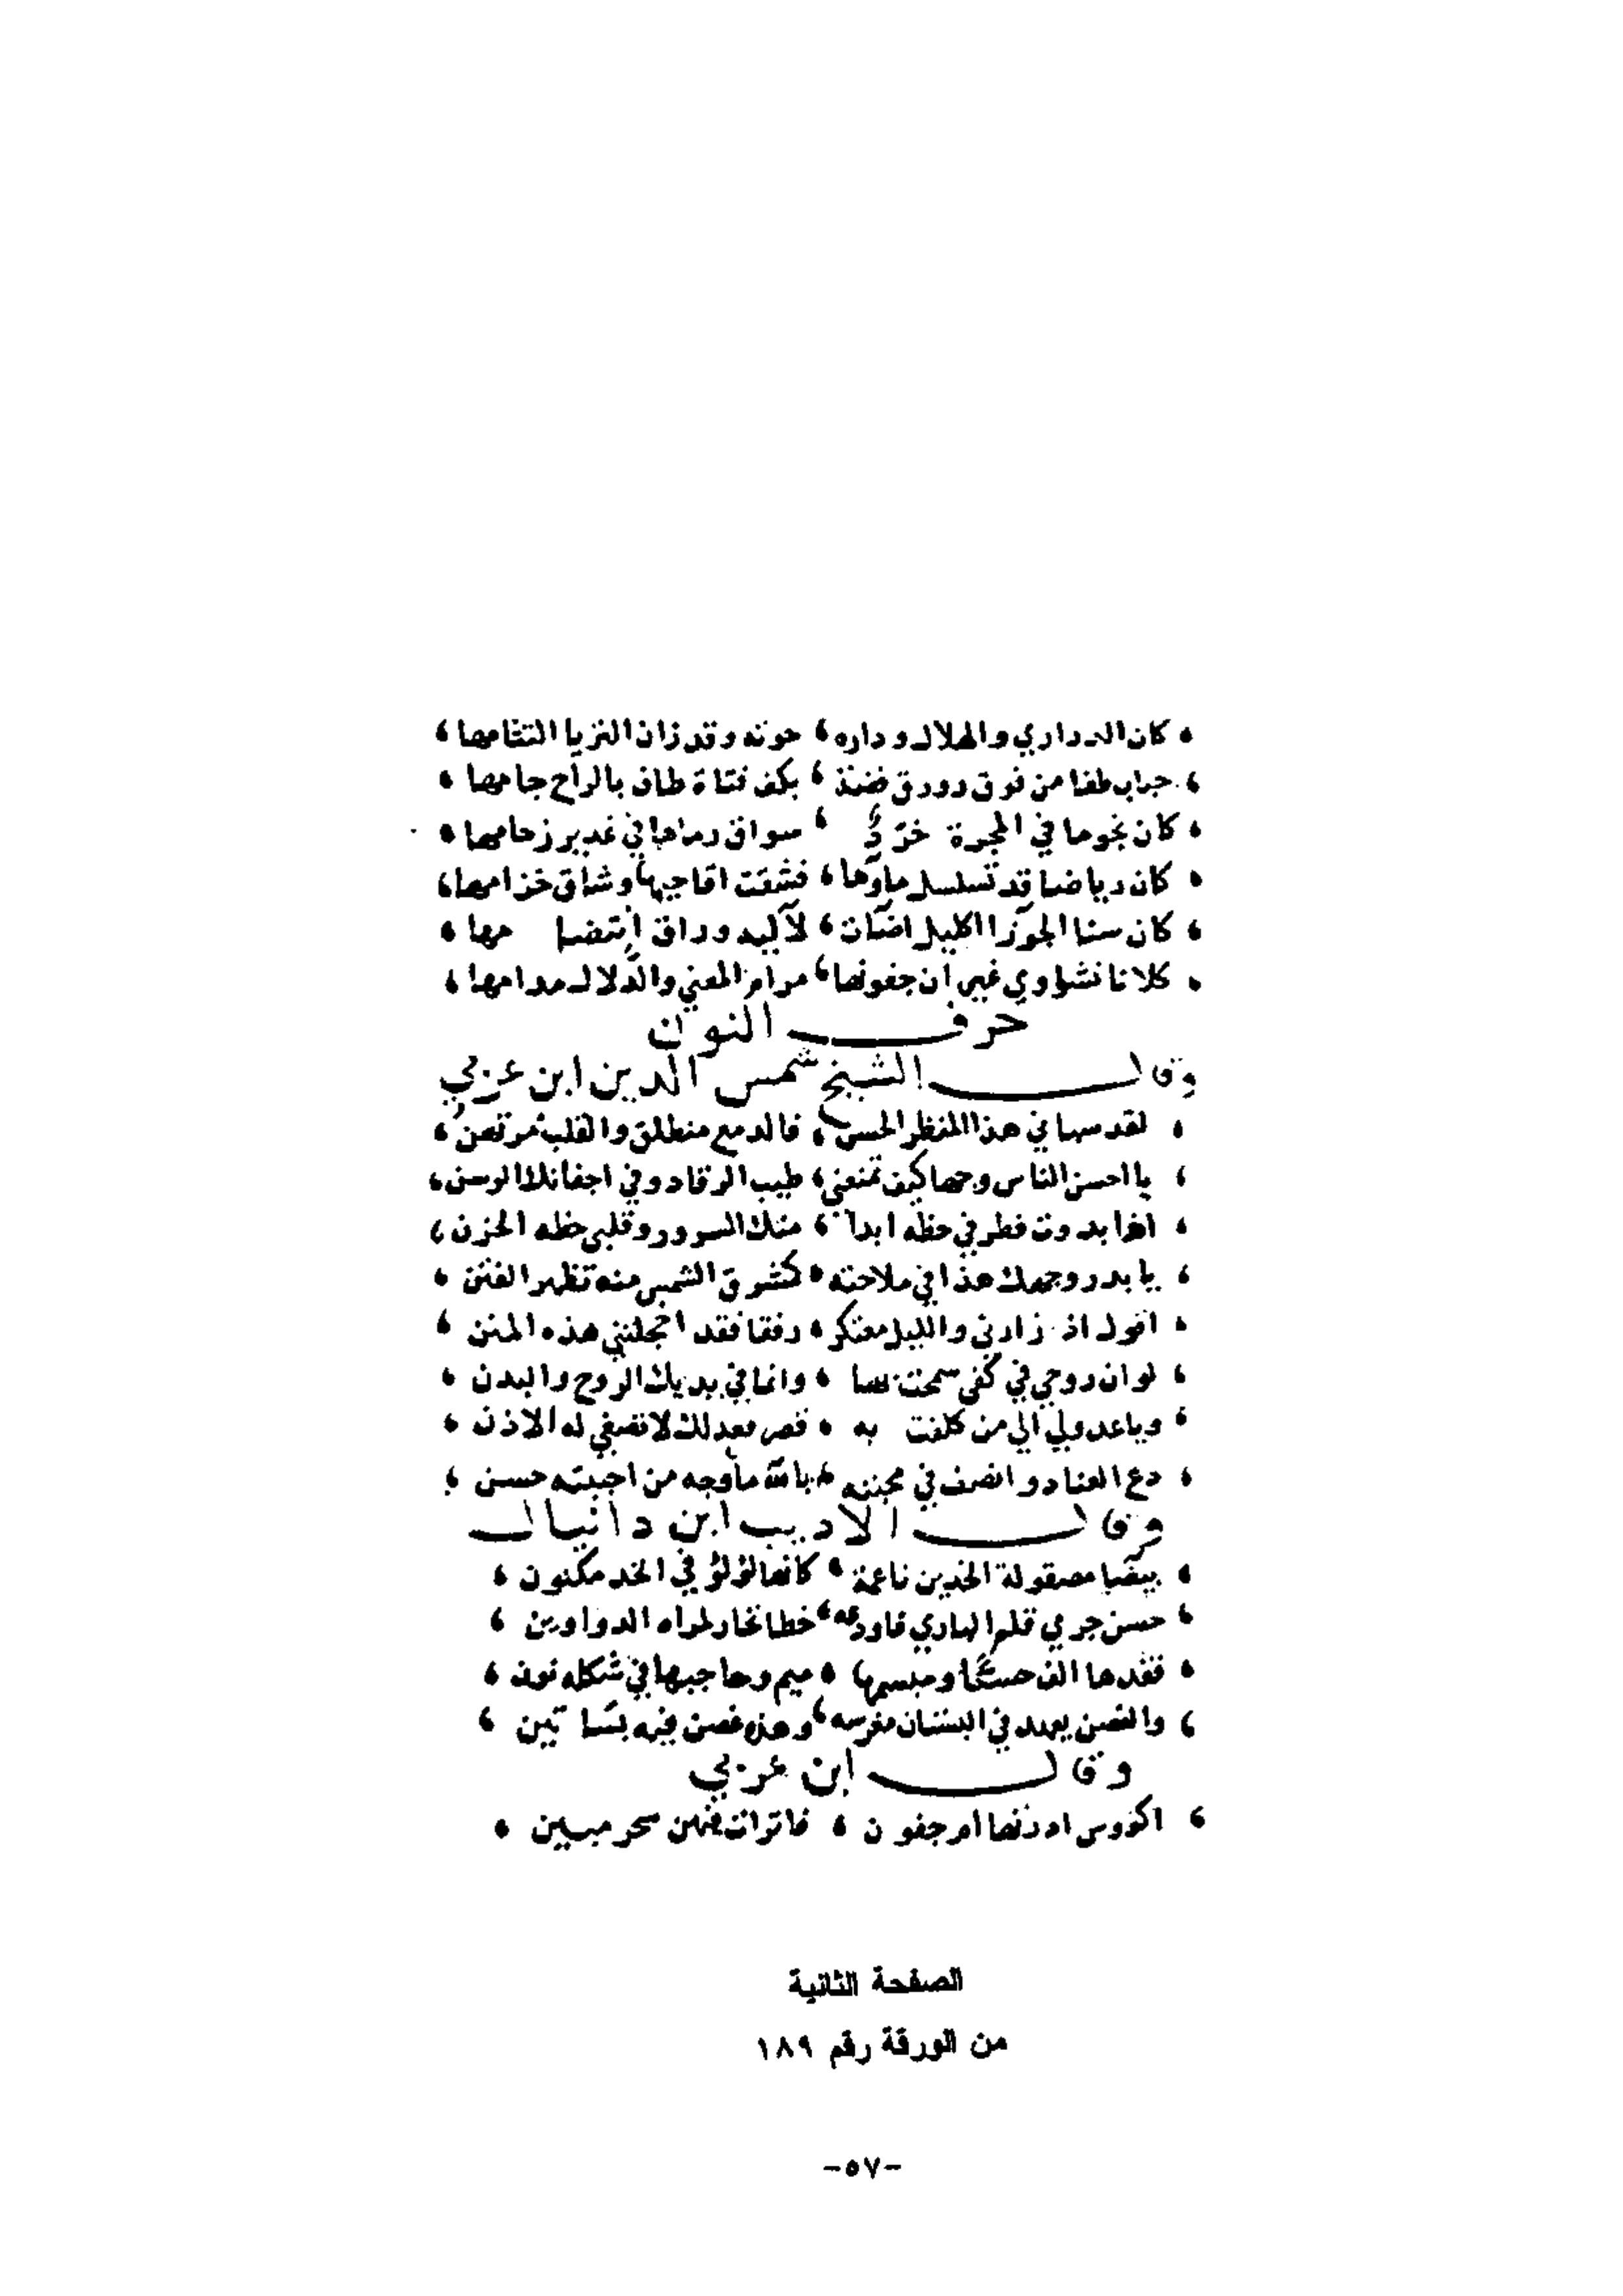 كان الدراري والهلال وداره ، حوته وقد زان الثريا التثامها ،
حباب طفا من فوق زورق فضة ، بكف فتاة طاف بالراح جامها ،
كان نجوما في المجرة خرد ، سواق رماها في غدير زحامها ،
كان رياضا قد تسلسل ماوها ، فشقت اقاحيها وشاق خزامها ،
كان سنا الجوزا اكليل اضات ، لآليه وراق انتضامها ،
كلانا نشاوي غير ان جفونها ، مرام المعني والدلال مدامها ،
حرف النون
وقال الشيخ شمس الدين ابن عربي
لقد سها في هذا المنظر الحسن ، فالدمع منطلق والقلب مرتهن ،
يا احسن الناس وجها كيف تمنعني ، طيب الرقاد وفي اجفانك الوسن ،
اذا بدوت فطرفي حظه ابدا ، منك السرور وقلبي حظه الحزن ،
يا بدر وجهك هذا في ملاحته ، كشرق الشمس منه تظهر الفتن ،
اقول اذ زارني والليل معتكر ، رفقا فقد اخجلتني هذه المنن ،
لو ان روحي في كفي سمحت بها ، وانما في يديك الروح والبدن ،
وياعدولي الي من كلفت به ، قصر فعدلك لا تصغي له الاذن ،
دع العناد وانصف في محبته ، بالله ما وجه من احببته حسن ،
وقال الاديب ابن دانيال
بيضا مصقولة الخدين ناعمة ، كانها لؤلؤ في الخد مكنون ،
حسن جري قلم الباري فاودعه ، خطا تحار لمراه الدواوين ،
فقدها الف حسنا ومبسمها ، ميم وحاجبها في شكله نون ،
والغصن يعهد في البستان مغرسه ، وهذه غصن فيه بساتين ،
وقال ابن عربي
اكووس ادرنها ام جفون ، فاترات فيهن سحر مبين ،
الصفحة الثانية
من الورقة رقم ١٨٩
-٥٧-